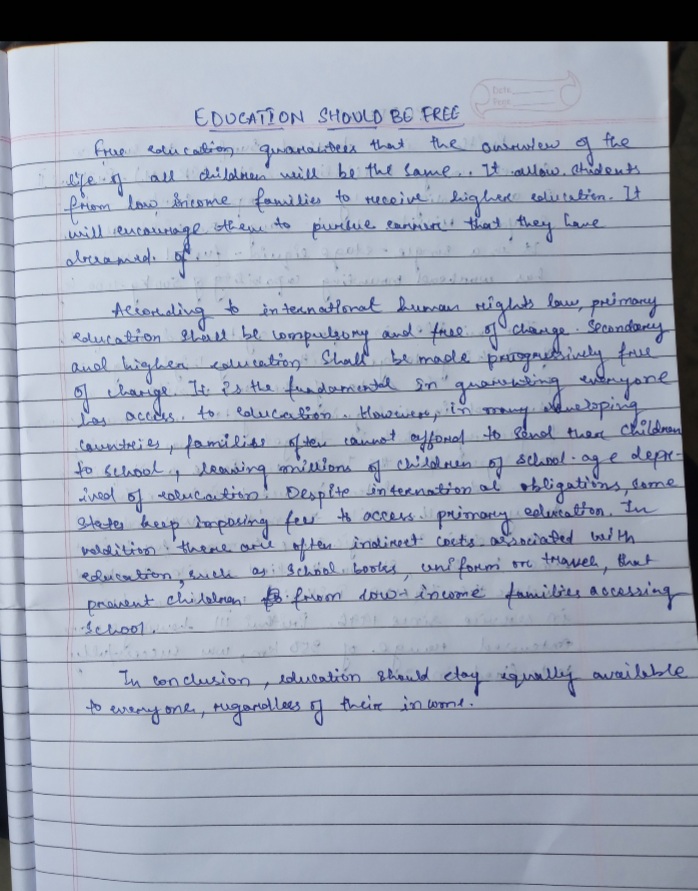 Date
Page
EDUCATION SHOULD BE FREE
Free education guarantees that the overview of the
life of all children will be the same.. It allow students
from low income families to receive higher education. It
will encourage them to pursue carrier that they have
dreamed of.
According to international human rights law, primary
education shall be compulsory and free of charge. Secondary
and higher education shall be made progressively free
of charge. It is the fundamental in guaranting everyone
has access to education. However, in many developing
countries, families often cannot afford to send their children
to school, leaving millions of children of school-age depr-
ived of education. Despite international obligations, some
states keep imposing fee to access primary education. In
addition there are often indirect costs associated with
education, such as school books, uniform or travel, that
prevent children from low-income families accessing
school.
In conclusion, education should stay equally available
to everyone, regardless of their income.